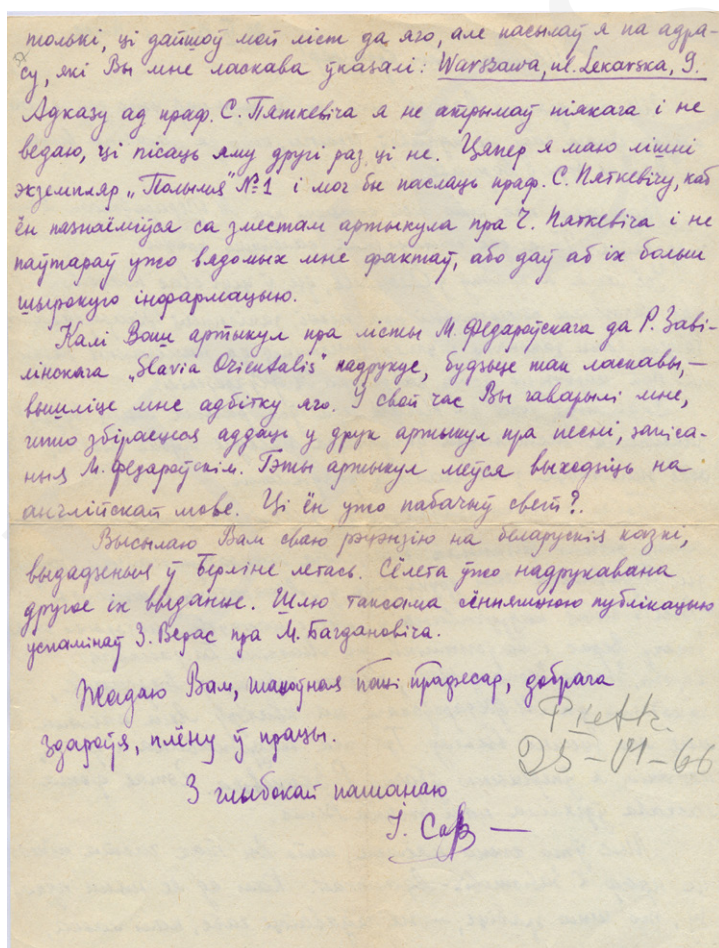 толькі, ці дайшоў мой ліст да яго, але пасылаў я па адра-
су, які Вы мне ласкава ўказалі: Warszawa, ul. Lekarska, 9.
Адказу ад праф. С. Пяткевіча я не атрымаў ніякага і не
ведаю, ці пісаць яму другі раз ці не. Цяпер я маю лішні
экземпляр „Полымя" №1 і мог бы паслаць праф. С. Пяткевічу, каб
ён пазнаёміўся са зместам артыкула пра Ч. Пяткевіча і не
паўтараў ужо вядомых мне фактаў, або даў аб іх больш
шырокую інфармацыю.
Калі Ваш артыкул пра лісты М. Федароўскага да Р. Заві-
лінскага „Slavia Orientalis" надрукуе, будзьце так ласкавы,—
вышліце мне адбітку яго. У свой час Вы гаварылі мне,
што збіраецеся аддаць у друк артыкул пра песні, запіса-
ныя М. Федароўскім. Гэты артыкул меўся выходзіць на
англійскай мове. Ці ён ужо пабачыў свет?.
Высылаю Вам сваю рэцэнзію на беларускія казкі,
выдадзеныя ў Берліне летась. Сёлета ўжо надрукавана
другое іх выданне. Шлю таксама сённяшнюю публікацыю
успамінаў З. Верас пра М. Багдановіча.
Жадаю Вам, шаноўная пані прафесар, добрага
здароўя, плёну ў працы.
25-VI-66
З глыбокай пашанаю
І. Сал